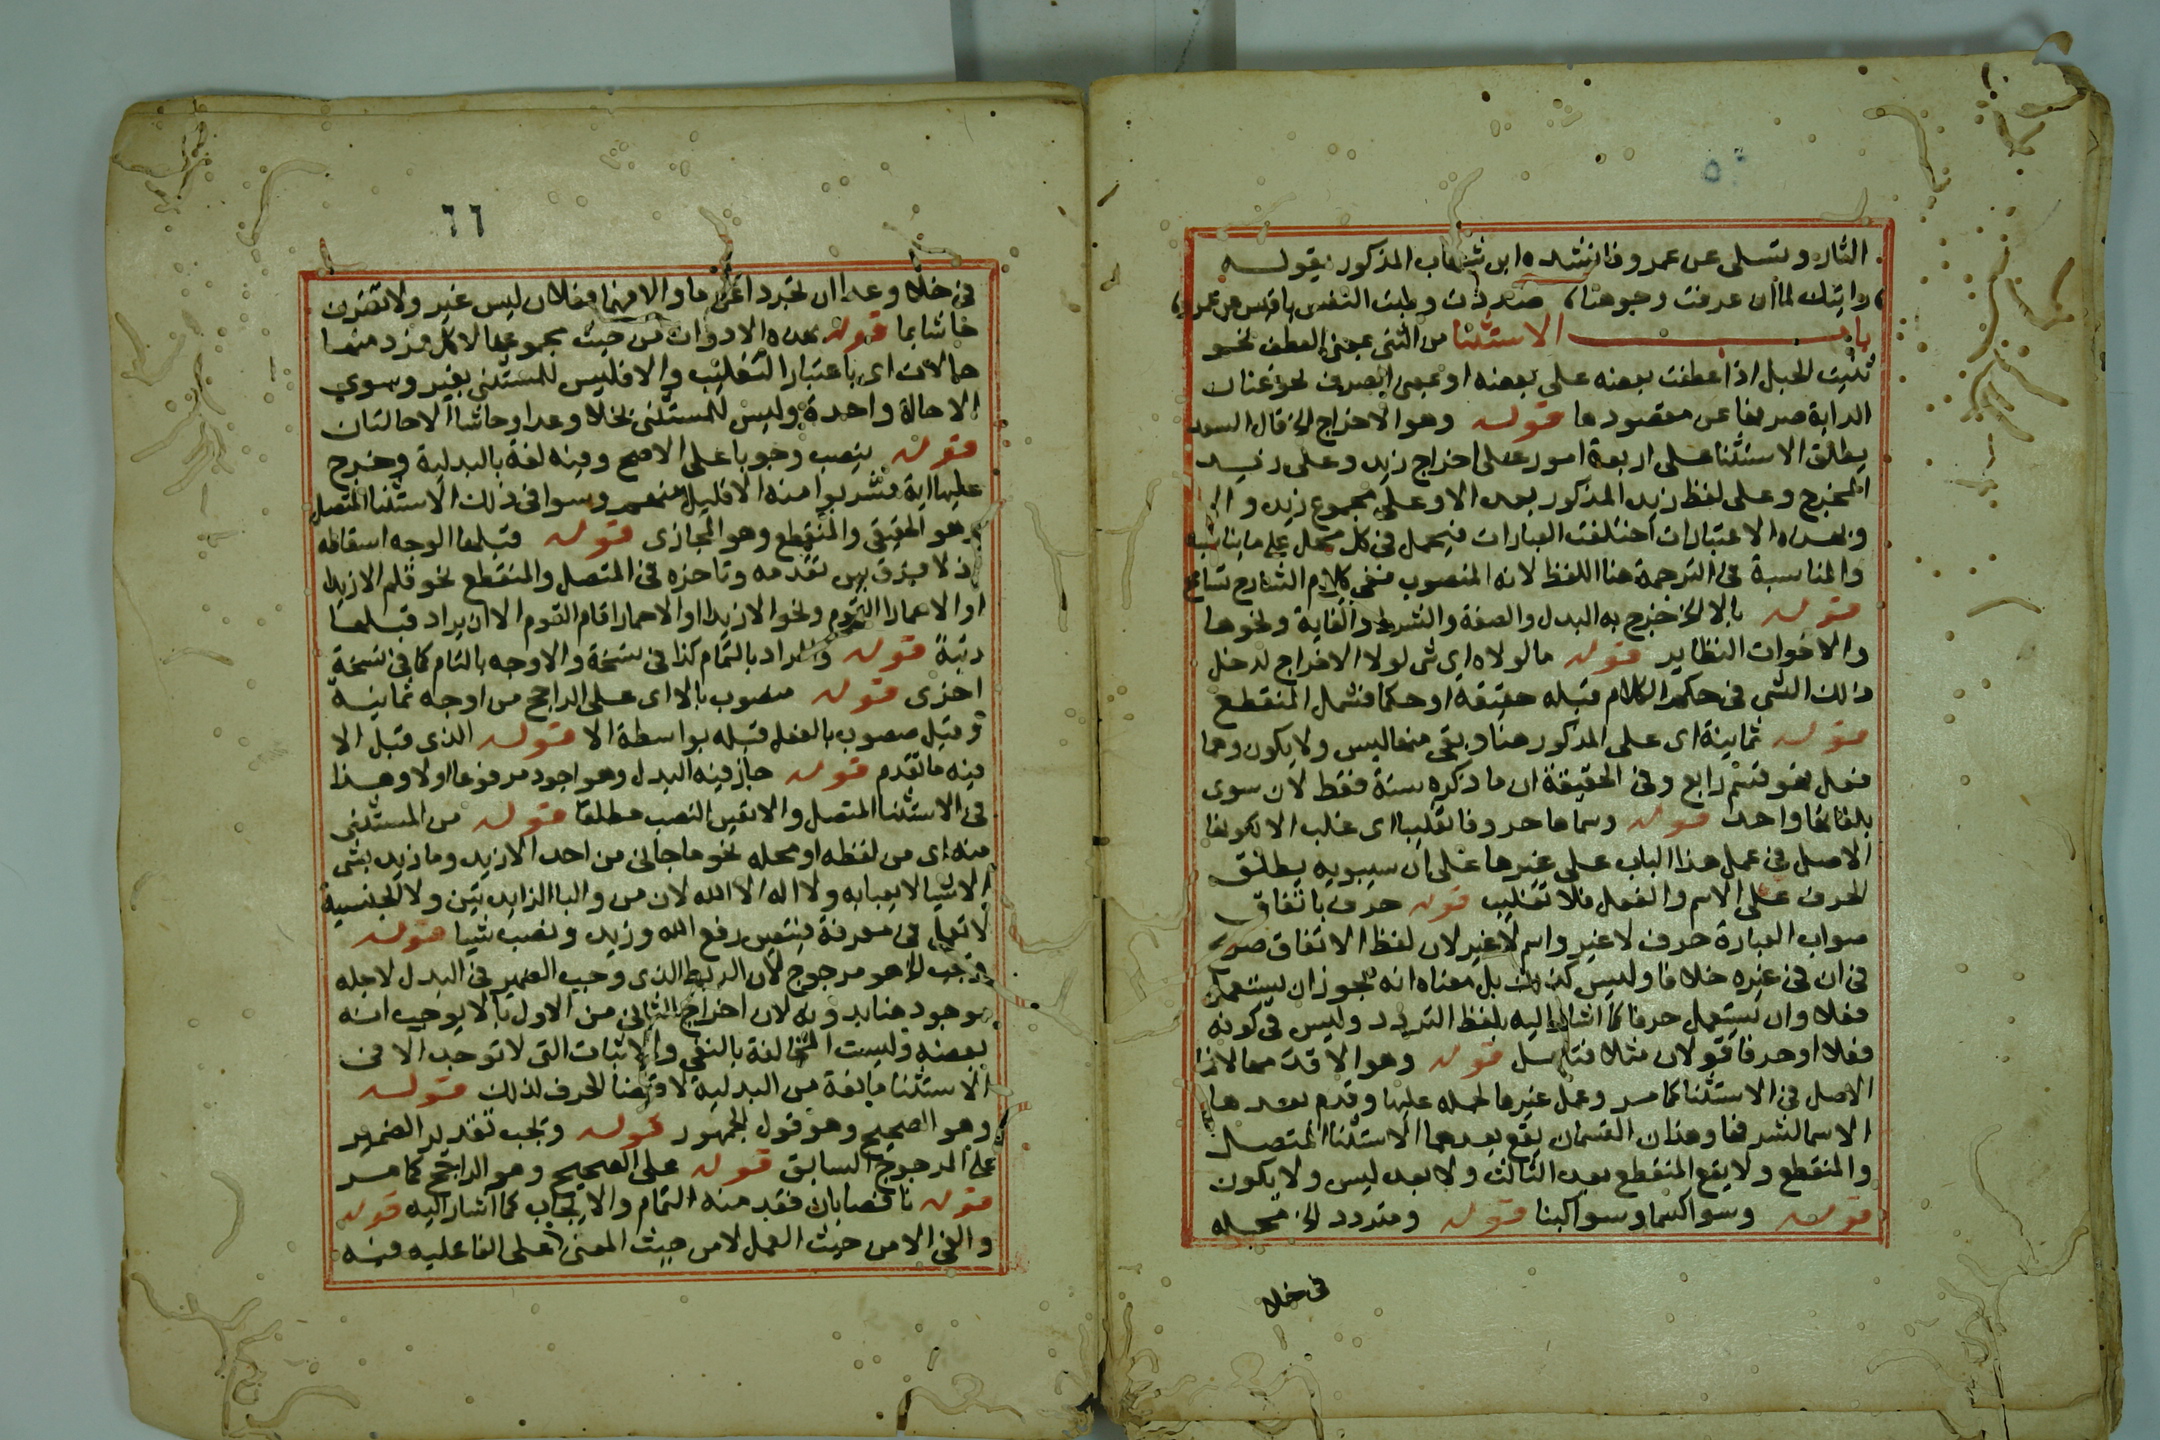 الثار وتسلى عن عمرو فانشده ابن شهاب المذكور بقوله
رايتك لما ان عرفت وجوهنا، صددت وطبت النفس ياقيس عن عمرو،
باب الاستثنا من الثنى بمعنى العطف نحو
ثنيت الحبل اذا عطفت بعضه على بعضه او بمعنى الصرف نحو عنان
الدابة صرفها عن مقصودها قوله وهو الاخراج الخ قال السيد
يطلق الاستثنا على اربعة امور على اخراج زيد وعلى زيد
المخرج وعلى لفظ زيد المذكور بعد الا وعلى مجموع زيد و
وبهذه الاعتبارات اختلفت العبارات فيحمل في كل محل على ما يناسبه
والمناسبة في الترجمة هنا اللفظ لانه المنصوب ففي كلام الشارح تسامح
قوله بالا الخ خرج به البدل والصفة والشرط والغاية ونحوها
والاخوات النظاير قوله ما لولاه اي شى لولا الاخراج لدخل
ذلك الشى في حكم الكلام قبله حقيقة او حكما فشمل المنقطع
قوله ثمانية اى على المذكور هنا وبقى منها ليس ولا يكون وهما
فعل فهو قسم رابع وفي الحقيقة ان ما ذكره ستة فقط لان سوى
بلغاتها واحد قوله وسماها حروفا تغليبا اى غلب الا لكونها
الاصل في عمل هذا الباب على غيرها على ان سيبويه يطلق
الحرف على الاسم والفعل فلا تغليب قوله حرف باتفاق
صواب العبارة حرف لا غير واسم لا غير لان لفظ الاتفاق
في ان في غيره خلافا وليس كذلك بل معناه انه يجوز ان يستعمل
فعلا وان يستعمل حرفا كما اشار اليه بلفظ التردد وليس في كونه
فعلا او حرفا قولان مثلا فتامل قوله وهو الا قدمها لانها
الاصل في الاستثنا كما مر وعمل غيرها لحمله عليها وقدم بعدها
الاسما لشرفها وهذان القسمان يقع بعدهما الاستثنا المتصل
والمنقطع ولا يقع المنقطع بعد الثالث ولا بعد ليس ولا يكون
قوله وسوا كسما وسوا كبنا قوله ومتردد الخ محله
في خلا
٦٦
في خلا وعدا ان تجردا عن ما والا فهما فعلان ليس غير ولا تقترن
حاشا بما قوله بهذه الادوات من حيث مجموعها لا كل فرد منها
حالات اى باعتبار التغليب والا فليس للمستثنى بغير وسوي
الا حالة واحدة وليس للمستثنى بخلا وعدا وحاشا الا حالتان
قوله ينصب وجوبا على الاصح وفيه لغة بالبدلية وخرج
عليها اية فشربوا منه الا قليل منهم وسوا في ذلك الاستثنا المتصل
وهو الحقيقى والمنقطع وهو المجازى قوله قبلها الوجه اسقاطه
اذ لا فرق بين تقدمه وتاخره في المتصل والمنقطع نحو قلم الا زيدا
او الا حمارا القوم ونحو الا زيدا او الا حمارا قام القوم الا ان يراد قبلها
رتبة قوله والمراد بالتمام كذا في نسخة والاوجه بالتام كما في نسخة
اخرى قوله منصوب بالا اى على الراجح من اوجه ثمانية
وقيل منصوب بالفعل قبله بواسطة الا قوله الذى قبل الا
فيه ما تقدم قوله جاز فيه البدل وهو اجود مرفوعا اولا وهذا
في الاستثنا المتصل والا تعين النصب مطلقا قوله من المستثنى
منه اى من لفظه او محله نحو ما جانى من احد الا زيد وما زيد بشى
الا شيا لا يعبا به ولا اله الا الله لان من والبا الزايدتين ولا الجنسية
لا تعمل في معرفة فيتعين رفع الله وزيد ونصب شيا قوله
فيجب الخ هو مرجوح لان الربط الذى وجب الضمير في البدل لاجله
موجود هنا بدونه لان اخراج الثانى من الاول بالا يوجب انه
بعضه وليست المخالفة بالنفي والاثبات التى لا توجد الا في
الاستثنا مانعة من البدلية لاقتضا الحرف لذلك قوله
وهو الصحيح وهو قول الجمهور قوله ويجب تقدير الضمير
على المرجوح السابق قوله على الصحيح وهو الراجح كما مر
قوله ناقصا بان فقد منه التمام والايجاب كما اشار اليه قوله
والغى الا من حيث العمل لا من حيث المعنى على الفاعلية فيه